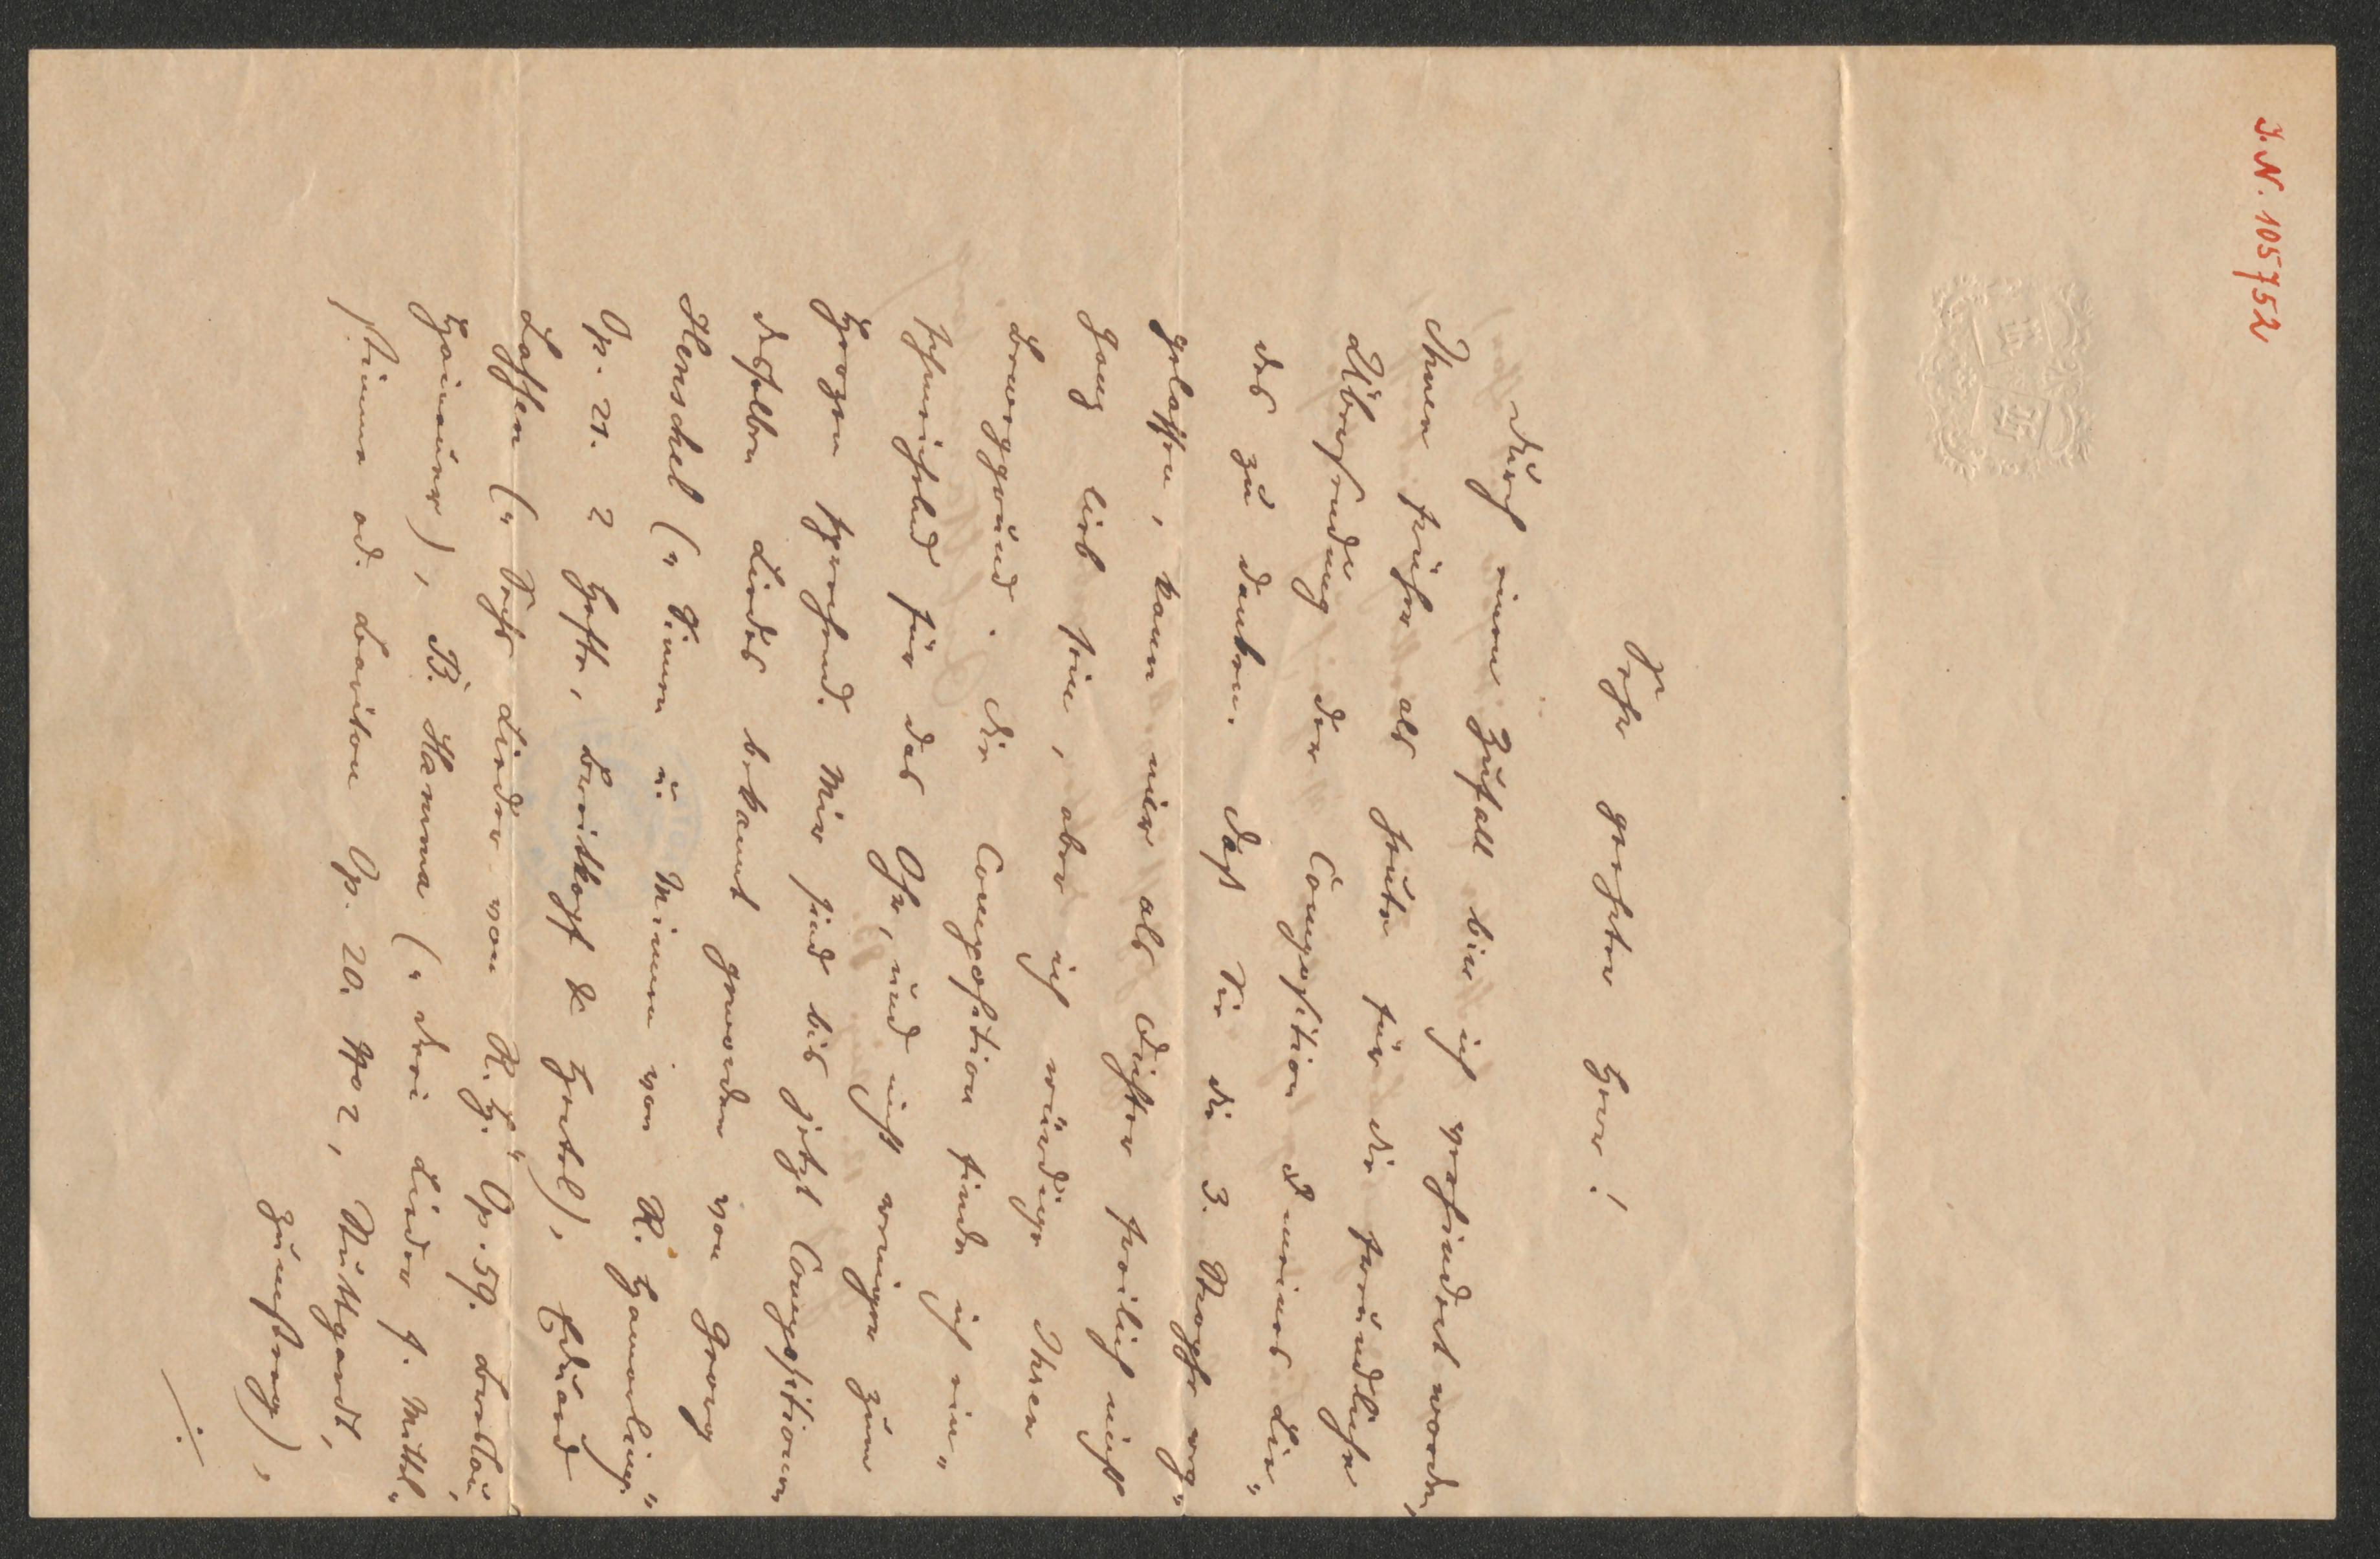 I. N. 105752
Sehr geehrter Herr!
Durch einen Zufall bin ich verhindert worden,
Ihnen früher als heute für die freundliche
Übersendung der Composition meines Lie„
des zu danken. Daß Sie die 3. Strophe weg„
gelassen, kann mir als Dichter freilich nicht
ganz lieb sein, aber ich würdige Ihren
Beweggrund. Die Composition finde ich ein„
schmeichelnd für das Ohr, und nicht weniger zum
Herzen sprechend. Mir sind bis jetzt Compositionen
desselben Liedes bekannt geworden von Georg
Henschel („Sinnen u. Minnen von R. Hamerling“
Op. 21. 2 Hefte, Breitkopf & Hertel), Eduard
Lassen („Sechs Lieder von R. H.“ Op. 59. Breslau,
Hainauer), B. Hamma („Drei Lieder f. Mittel„
stimme od. Bariton Op. 20. No 2, Stuttgardt,
Zumsteeg),
./.